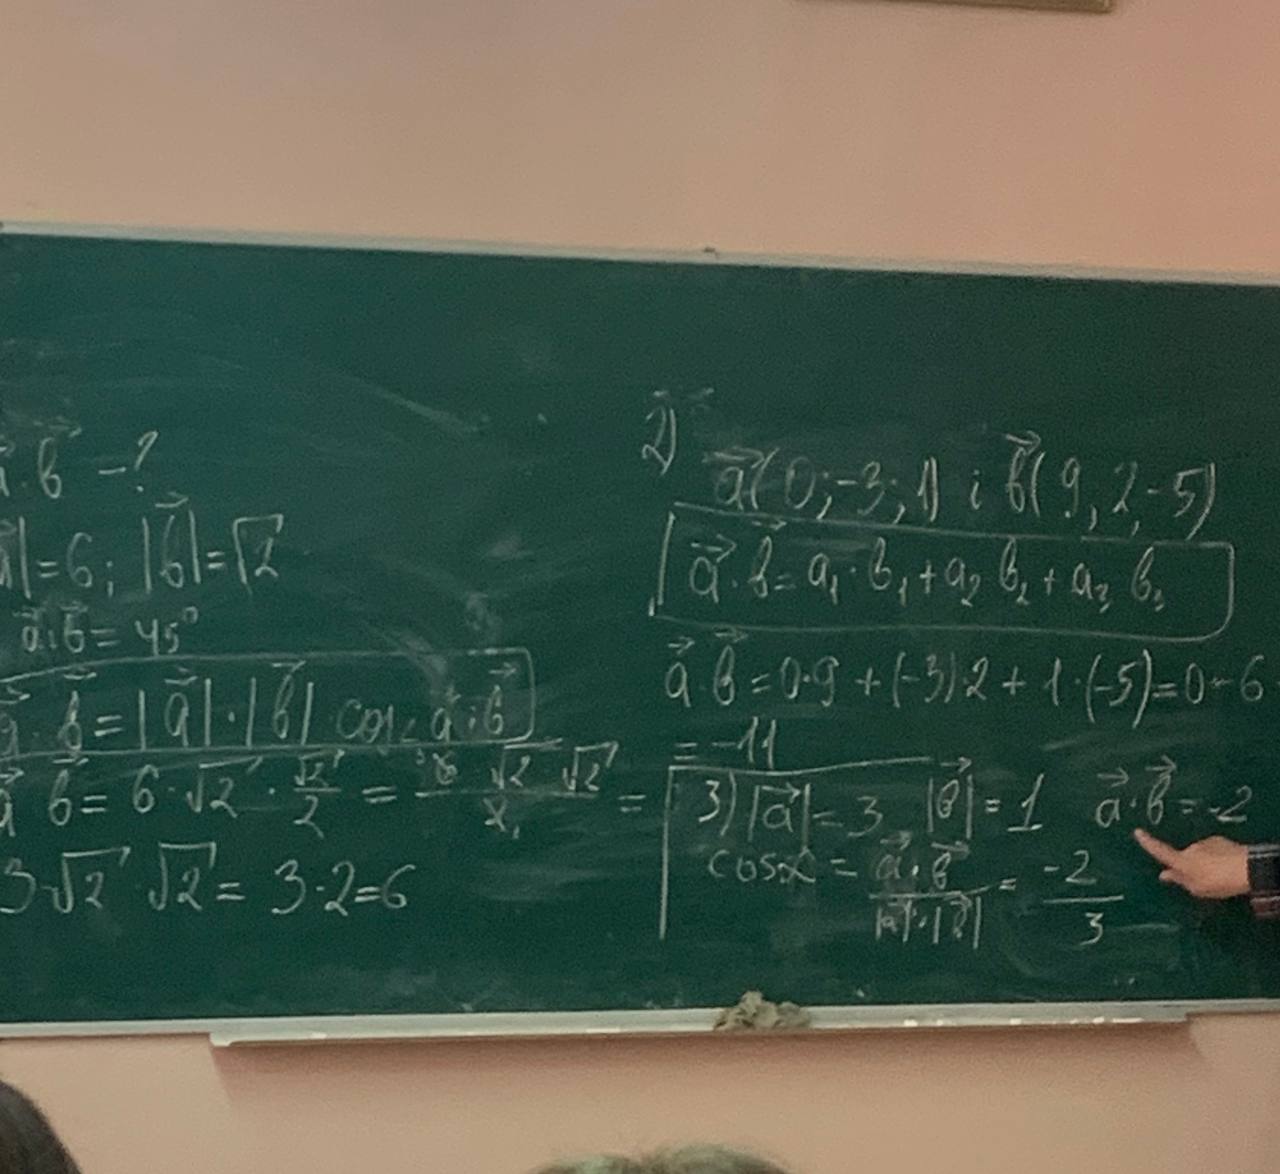 a⃗·b⃗ -?
|a⃗|=6; |b⃗|=√2
a⃗;b⃗ = 45°
a⃗·b⃗ = |a⃗|·|b⃗| cos∠ a⃗;b⃗
a⃗ b⃗ = 6·√2 · √2/2 = 6 √2 √2/2 =
3·√2 · √2 = 3·2=6
2)
a⃗(0;-3;1) i b⃗(9,2,-5)
a⃗·b⃗ = a₁·b₁+a₂ b₂+a₃ b₃
a⃗·b⃗ = 0·9 +(-3)·2 + 1·(-5)=0-6
= -11
3) |a⃗|=3 |b⃗|=1 a⃗·b⃗=-2
cosα = a⃗·b⃗/|a⃗|·|b⃗| = -2/3